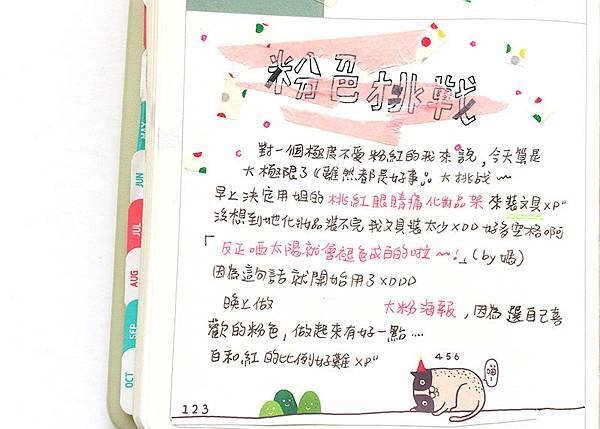 粉色挑戰
對一個極度不愛粉紅的我來說，今天算是
大極限了《雖然都是好事》大挑戰～
早上決定用姐的桃紅眼睛痛化妝品架來裝文具XP"
沒想到她化妝品裝不完我文具裝太少XDD好多空格啊
「反正晒太陽就會褪色成白的啦～!」(by媽)
因為這句話就開始用了XDDD
晚上做 大粉海報，因為選自己喜
歡的粉色，做起來有好一點....
白和紅的比例好難XP"
456
喵~
123
MAY
JUN
JUL
AUG
SEP
OCT